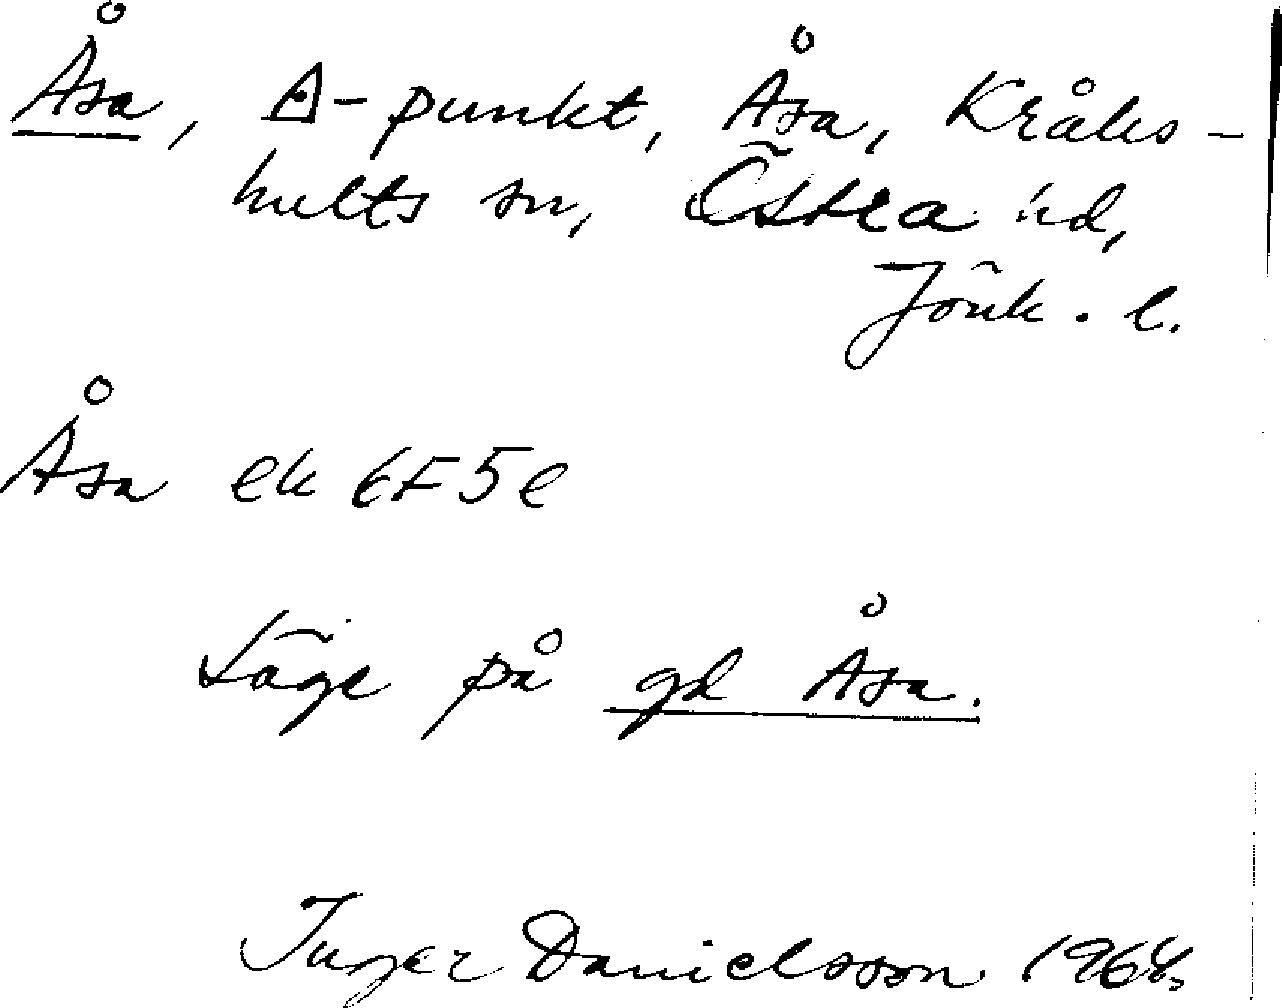 Åsa, △-punkt, Åsa, Kråks-
hults sn, Östra hd,
Jönk. l.
Åsa ek 6F5e
Läge på gd Åsa.
Inger Danielsson 1968.